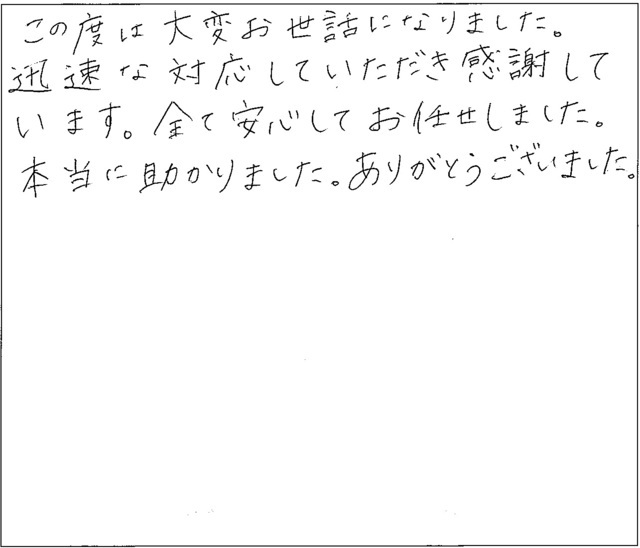 この度は大変お世話になりました。
迅速な対応していただき感謝して
います。全て安心してお任せしました。
本当に助かりました。ありがとうございました。